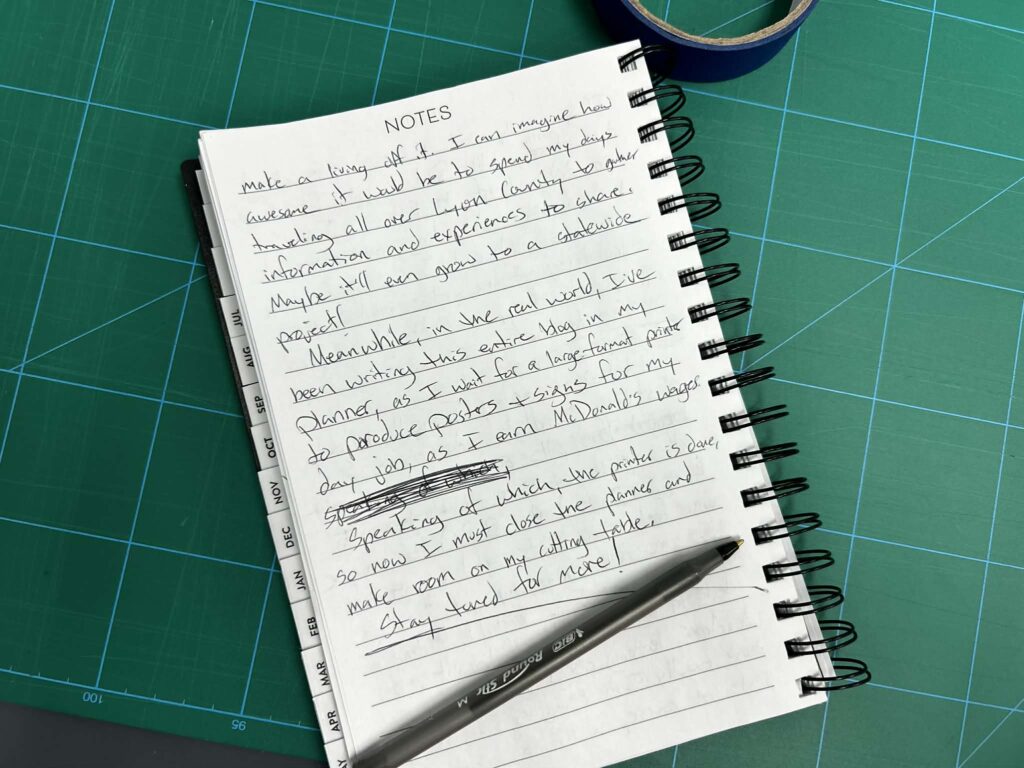 NOTES
make a living off it. I can imagine how
awesome it would be to spend my days
traveling all over Lyon County to gather
information and experiences to share.
Maybe it'll even grow to a statewide
project!
Meanwhile, in the real world, I've
been writing this entire blog in my
planner, as I wait for a large-format printer
to produce posters + signs for my
day job, as I earn McDonald's wages.
speaking of which,
Speaking of which, the printer is done,
so now I must close the planner and
make room on my cutting table.
Stay tuned for more!
JUL
AUG
SEP
OCT
NOV
DEC
JAN
FEB
MAR
APR
BIC Round Stic M
100
95